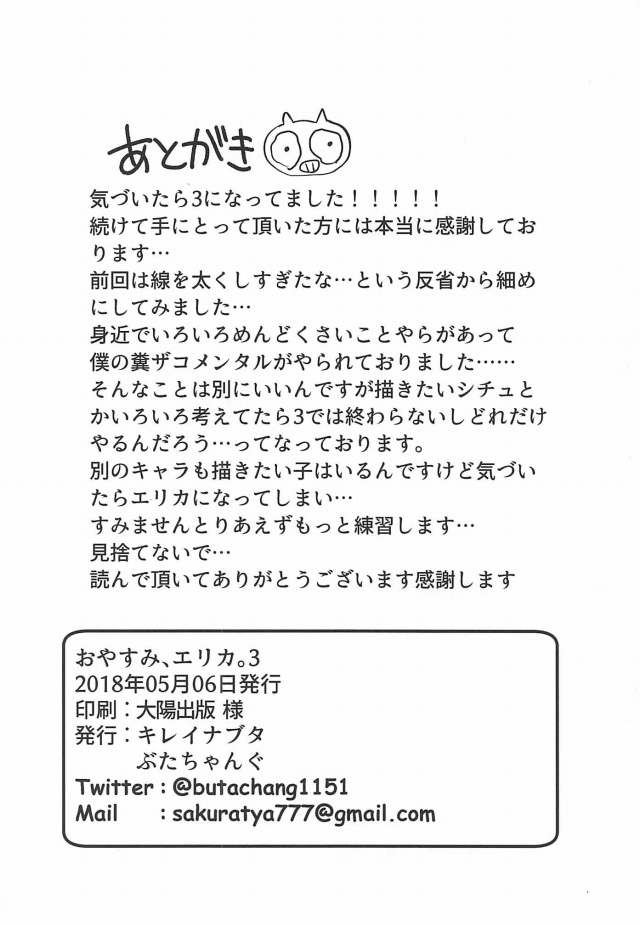 あとがき
気づいたら3になってました！！！！！
続けて手にとって頂いた方には本当に感謝してお
ります…
前回は線を太くしすぎたな…という反省から細め
にしてみました…
身近でいろいろめんどくさいことやらがあって
僕の糞ザコメンタルがやられておりました……
そんなことは別にいいんですが描きたいシチュと
かいろいろ考えてたら3では終わらないしどれだけ
やるんだろう…ってなっております。
別のキャラも描きたい子はいるんですけど気づい
たらエリカになってしまい…
すみませんとりあえずもっと練習します…
見捨てないで…
読んで頂いてありがとうございます感謝します
おやすみ、エリカ。3
2018年05月06日発行
印刷：大陽出版 様
発行：キレイナブタ
ぶたちゃんぐ
Twitter : @butachang1151
Mail : sakuratya777@gmail.com